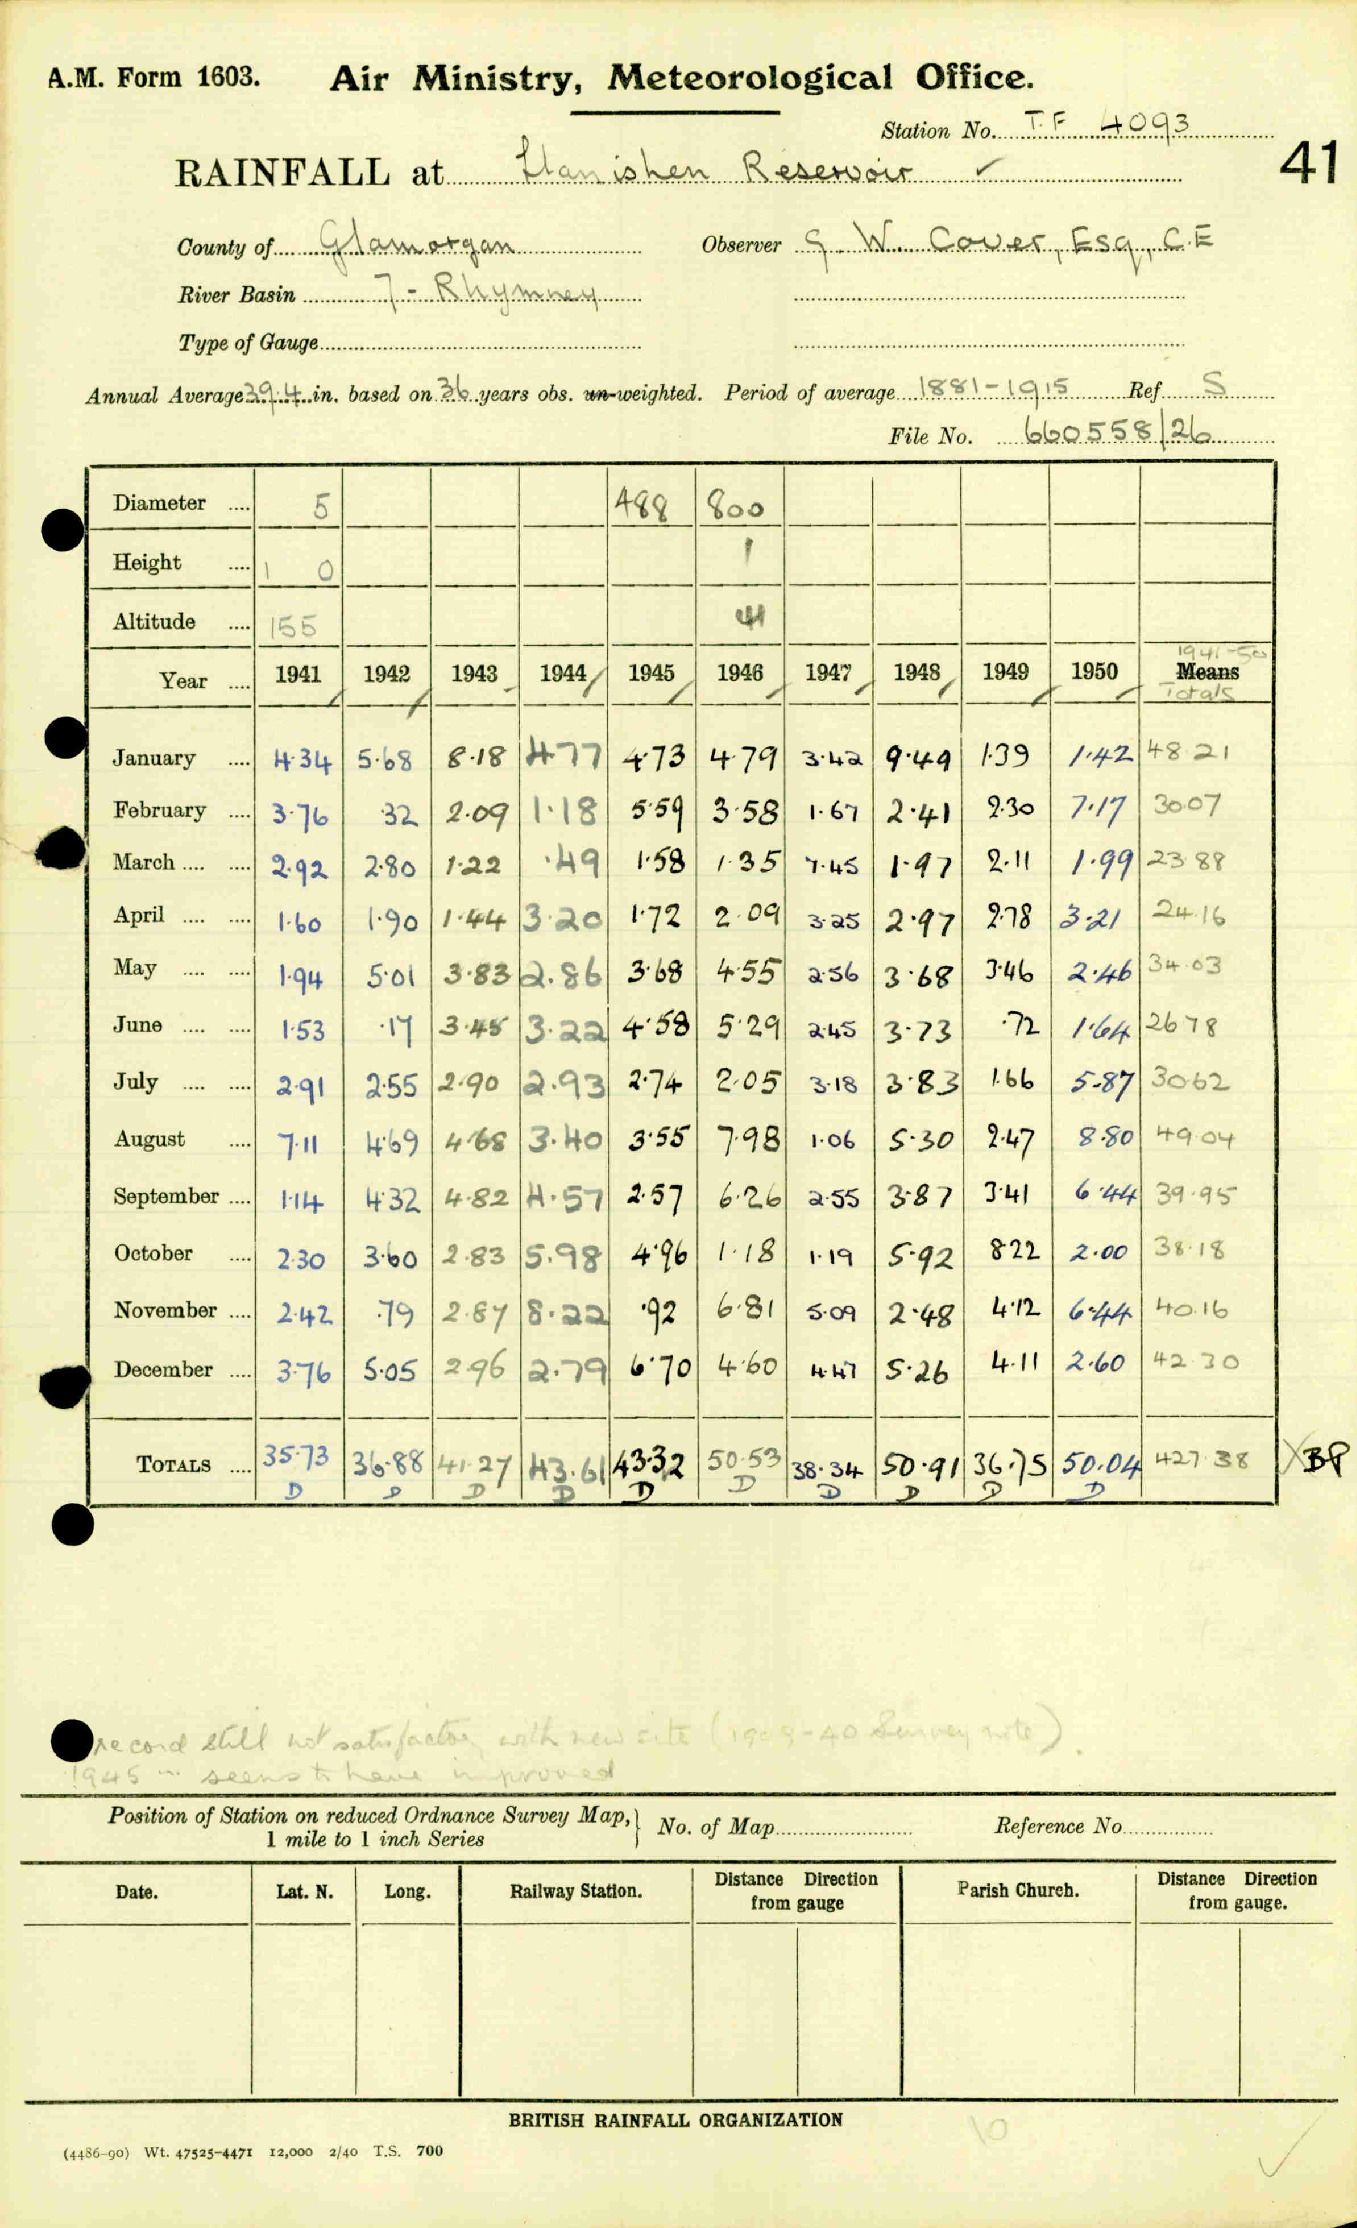 A.M. Form 1603. Air Ministry, Meteorological Office.
Station No. T.F 4093
41
RAINFALL at Llanishen Reservoir ✓
County of Glamorgan Observer G. W. Cover, Esq., C.E
River Basin 7 - Rhymney
Type of Gauge
Annual Average 39.4 in. based on 36 years obs. un-weighted. Period of average 1881-1915 Ref S
File No. 660558/26
Diameter .... 5 488 800
Height .... 1 0 1
Altitude .... 155 41
1941-50
Year .... 1941 1942 1943 1944 1945 1946 1947 1948 1949 1950 Means
Totals
January .... 4.34 5.68 8.18 4.77 4.73 4.79 3.42 9.49 1.39 1.42 48.21
February .... 3.76 .32 2.09 1.18 5.59 3.58 1.67 2.41 2.30 7.17 30.07
March .... .... 2.92 2.80 1.22 .49 1.58 1.35 7.45 1.97 2.11 1.99 23.88
April .... .... 1.60 1.90 1.44 3.20 1.72 2.09 3.25 2.97 2.78 3.21 24.16
May .... .... 1.94 5.01 3.83 2.86 3.68 4.55 2.56 3.68 3.46 2.46 34.03
June .... .... 1.53 .17 3.45 3.22 4.58 5.29 2.45 3.73 .72 1.64 26.78
July .... .... 2.91 2.55 2.90 2.93 2.74 2.05 3.18 3.83 1.66 5.87 30.62
August .... 7.11 4.69 4.68 3.40 3.55 7.98 1.06 5.30 2.47 8.80 49.04
September .... 1.14 4.32 4.82 4.57 2.57 6.26 2.55 3.87 3.41 6.44 39.95
October .... 2.30 3.60 2.83 5.98 4.96 1.18 1.19 5.92 8.22 2.00 38.18
November .... 2.42 .79 2.87 8.22 .92 6.81 5.09 2.48 4.12 6.44 40.16
December .... 3.76 5.05 2.96 2.79 6.70 4.60 4.47 5.26 4.11 2.60 42.30
TOTALS .... 35.73 36.88 41.27 43.61 43.32 50.53 38.34 50.91 36.75 50.04 427.38 X BP
D D D D D D D D D D
record still not satisfactory with new site (1909-40 Survey note).
1945 seems to have improved
Position of Station on reduced Ordnance Survey Map,
1 mile to 1 inch Series
No. of Map Reference No.
Date. Lat. N. Long. Railway Station. Distance Direction from gauge Parish Church. Distance Direction from gauge.
BRITISH RAINFALL ORGANIZATION
10
(4486-90) Wt. 47525-4471 12,000 2/40 T.S. 700